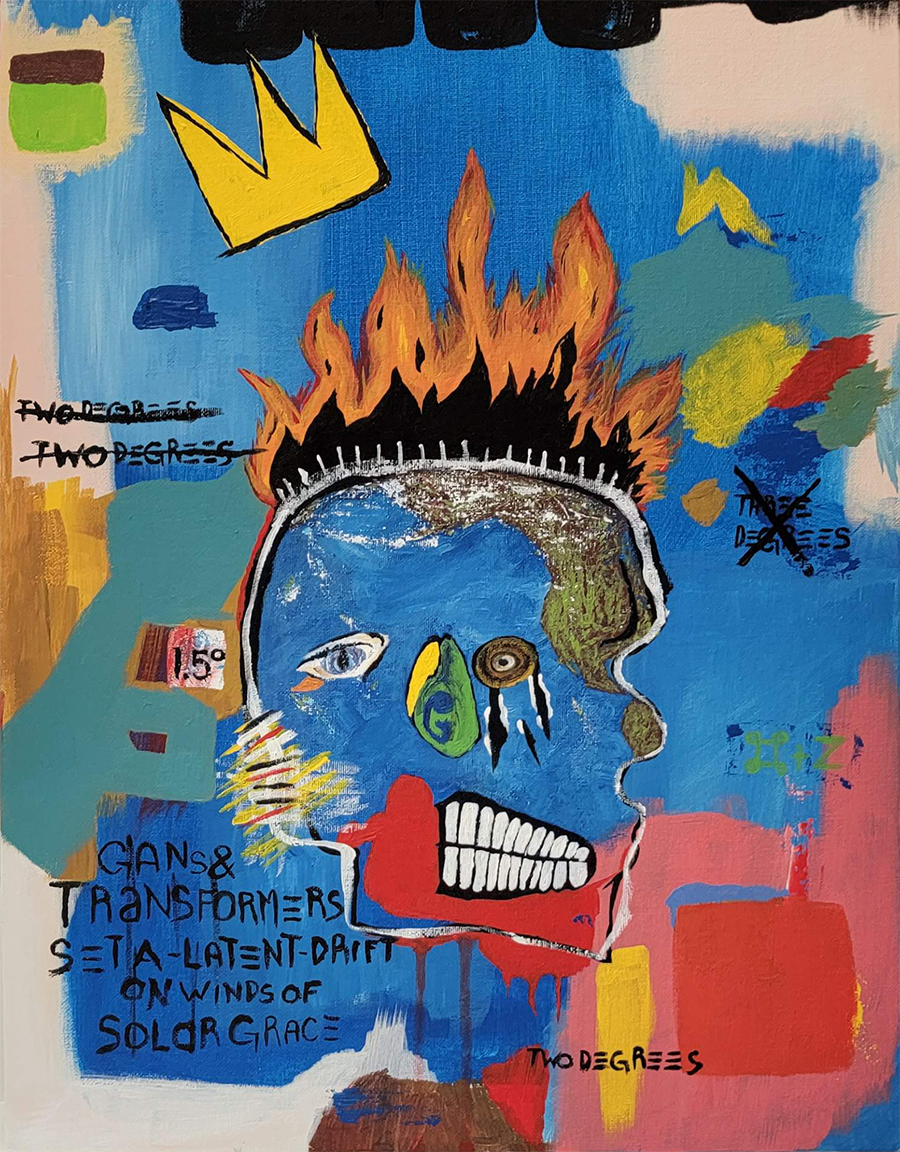 TWO DEGREES
TWO DEGREES
THREE
DEGREES
1.5°
⌘+Z
GANS&
TRANSFORMERS
SET A-LATENT-DRIFT
ON WINDS OF
SOLAR GRACE
TWO DEGREES